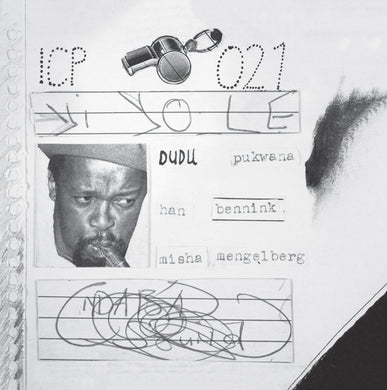 ICP 021
Yi YO LE
DUDU pukwana
han bennink
misha mengelberg
NDABA
sound